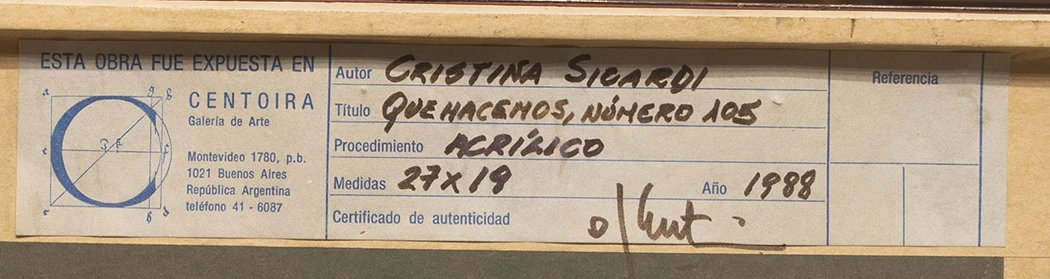 ESTA OBRA FUE EXPUESTA EN
CENTOIRA
Galería de Arte
Montevideo 1780, p.b.
1021 Buenos Aires
República Argentina
teléfono 41 - 6087
Autor CRISTINA SICARDI
Título QUEHACEMOS, NÚMERO 105
Procedimiento ACRÍLICO
Medidas 27x19 Año 1988
Certificado de autenticidad
Referencia